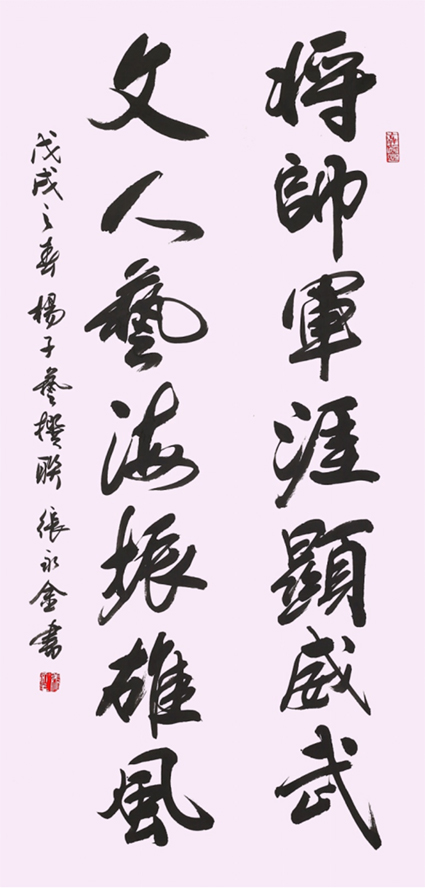 將帥軍涯顯威武
文人藝海振雄風
戊戌之春楊子藝撰聯 張永金書